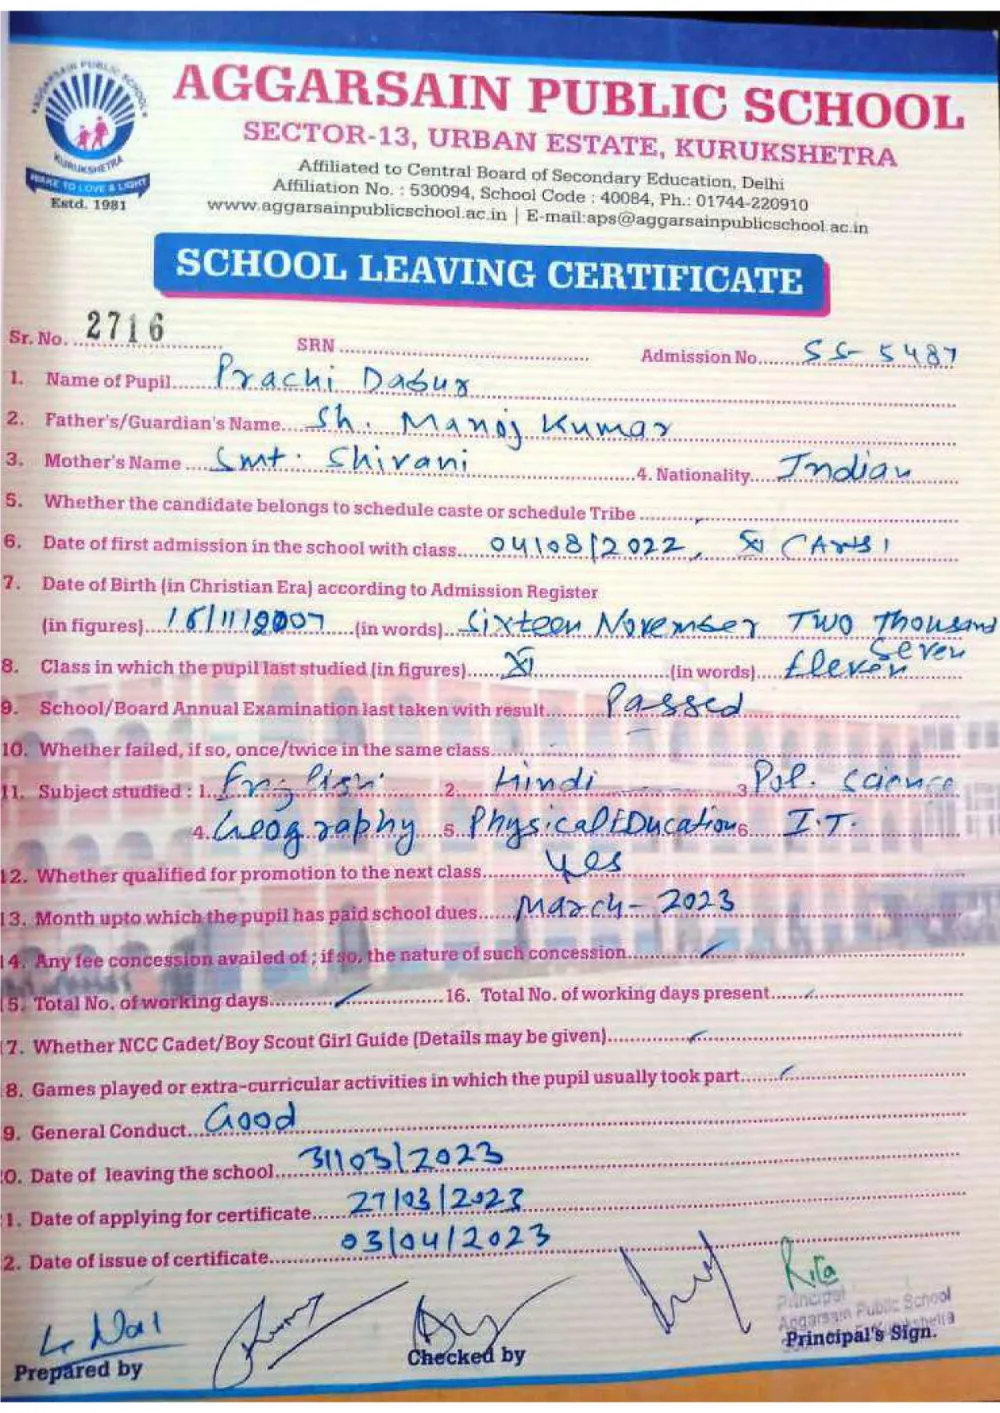 AGGARSAIN PUBLIC SCHOOL
AGGARSAIN PUBLIC SCHOOL
KURUKSHETRA
SECTOR-13, URBAN ESTATE, KURUKSHETRA
Affiliated to Central Board of Secondary Education, Delhi
Affiliation No. : 530094, School Code : 40084, Ph.: 01744-220910
www.aggarsainpublicschool.ac.in | E-mail:aps@aggarsainpublicschool.ac.in
TO LOVE & LIGHT
Estd. 1981
SCHOOL LEAVING CERTIFICATE
Sr. No. 2716 SRN Admission No. SS-5487
1. Name of Pupil Prachi Dabur
2. Father's/Guardian's Name Sh. Manoj Kumar
3. Mother's Name Smt. Shivani 4. Nationality Indian
5. Whether the candidate belongs to schedule caste or schedule Tribe
6. Date of first admission in the school with class 04/08/2022, XI (Arts)
7. Date of Birth (in Christian Era) according to Admission Register
(in figures) 16/11/2007 (in words) Sixteen November Two Thousand Seven
8. Class in which the pupil last studied (in figures) XI (in words) Eleven
9. School/Board Annual Examination last taken with result Passed
10. Whether failed, if so, once/twice in the same class
11. Subject studied : 1. English 2. Hindi 3 Pol. Science
4. Geography 5. Physical Education 6. I.T.
12. Whether qualified for promotion to the next class Yes
13. Month upto which the pupil has paid school dues March-2023
14. Any fee concession availed of ; if so, the nature of such concession
15. Total No. of working days 16. Total No. of working days present
17. Whether NCC Cadet/Boy Scout Girl Guide (Details may be given)
8. Games played or extra-curricular activities in which the pupil usually took part
9. General Conduct Good
0. Date of leaving the school 31/03/2023
1. Date of applying for certificate 27/03/2023
2. Date of issue of certificate 03/04/2023
Rita
Principal
Aggarsain Public School
Prepared by Checked by Principal's Sign.